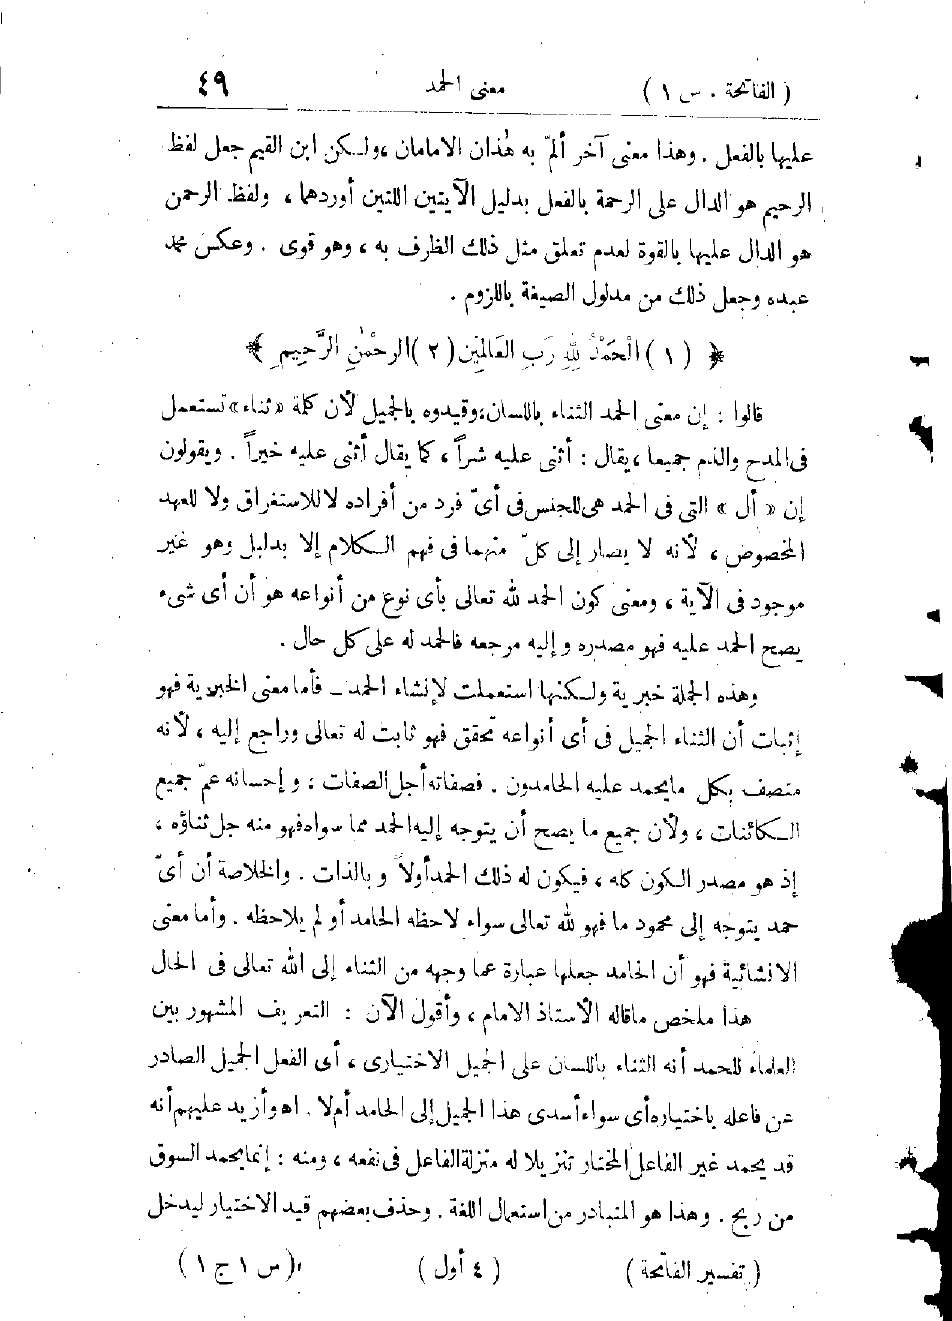 ( الفاتحة . س ١ ) معنى الحمد ٤٩
عليها بالفعل . وهذا معنى آخر ألمّ به هٰذان الامامان ، ولـكن ابن القيم جعل لفظ
الرحيم هو الدال على الرحمة بالفعل بدليل الآيتين اللتين أوردهما ، ولفظ الرحمن
هو الدال عليها بالقوة لعدم تعلق مثل ذلك الظرف به ، وهو قوى . وعكس محمد
عبده وجعل ذلك من مدلول الصيغة باللزوم .
﴿ ( ١ ) الْحَمْدُ لِلّٰهِ رَبِ العَالَمِين ( ٢ ) الرحْمٰنِ الرَّحِيمِ ﴾
قالوا : إن معنى الحمد الثناء باللسان ، وقيدوه بالجميل لأن كلمة « ثناء » تستعمل
فى المدح والذم جميعا ، يقال : أثنى عليه شراً ، كما يقال أثنى عليه خيراً . ويقولون
إن « أل » التى فى الحمد هى للجنس فى أىّ فرد من أفراده لا للاستغراق ولا للعهد
المخصوص ، لأنه لا يصار إلى كلّ منهما فى فهم الـكلام إلا بدليل وهو غير
موجود فى الآية ، ومعنى كون الحمد لله تعالى بأى نوع من أنواعه هو أن أى شىء
يصح الحمد عليه فهو مصدره وإليه مرجعه فالحمد له على كل حال .
وهذه الجملة خبرية ولـكنها استعملت لإنشاء الحمد ــ فأما معنى الخبرية فهو
إثبات أن الثناء الجميل فى أى أنواعه تحقق فهو ثابت له تعالى وراجع إليه ، لأنه
متصف بكل ما يحمد عليه الحامدون . فصفاته أجل الصفات : وإحسانه عمّ جميع
الـكائنات ، ولأن جميع ما يصح أن يتوجه إليه الحمد مما سواه فهو منه جل ثناؤه ،
إذ هو مصدر الـكون كله ، فيكون له ذلك الحمد أولاً وبالذات . والخلاصة أن أىّ
حمد يتوجه إلى محمود ما فهو لله تعالى سواء لاحظه الحامد أو لم يلاحظه . وأما معنى
الانشائية فهو أن الحامد جعلها عبارة عما وجهه من الثناء إلى الله تعالى فى الحال
هذا ملخص ماقاله الأستاذ الامام ، وأقول الآن : التعريف المشهور بين
العلماء للحمد أنه الثناء باللسان على الجميل الاختيارى ، أى الفعل الجميل الصادر
عن فاعله باختياره أى سواء أسدى هذا الجميل إلى الحامد أم لا . اه وأزيد عليهم أنه
قد يحمد غير الفاعل المختار تنزيلا له منزلة الفاعل فى نفعه ، ومنه : إنما يحمد السوق
من ربح . وهذا هو المتبادر من استعمال اللغة . وحذف بعضهم قيد الاختيار ليدخل
( تفسير الفاتحة ) ( ٤ أول ) ( س ١ ج ١ )